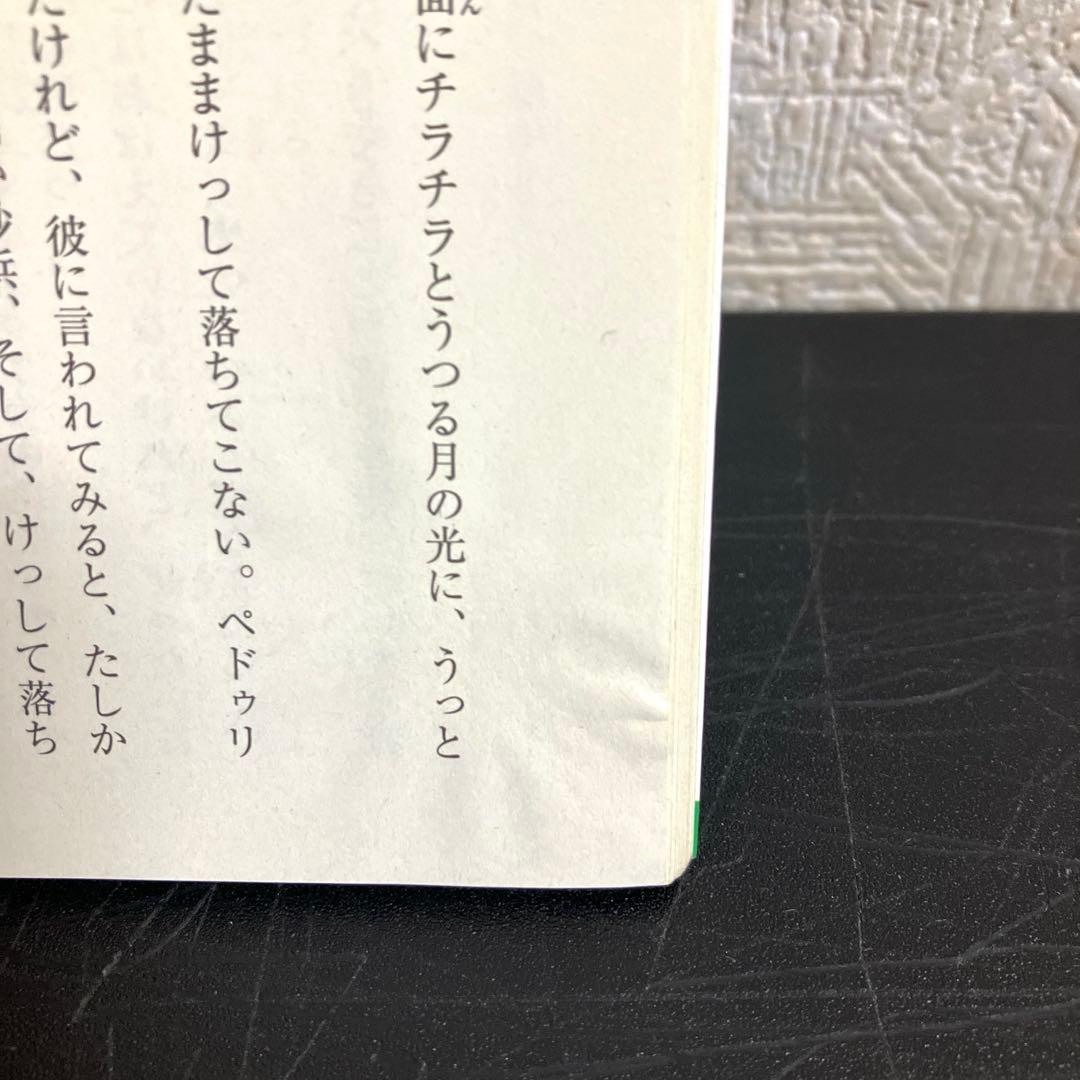 面にチラチラとうつる月の光に、うっと
たままけっして落ちてこない。ペドゥリ
たけれど、彼に言われてみると、たしか
砂浜、そして、けっして落ち